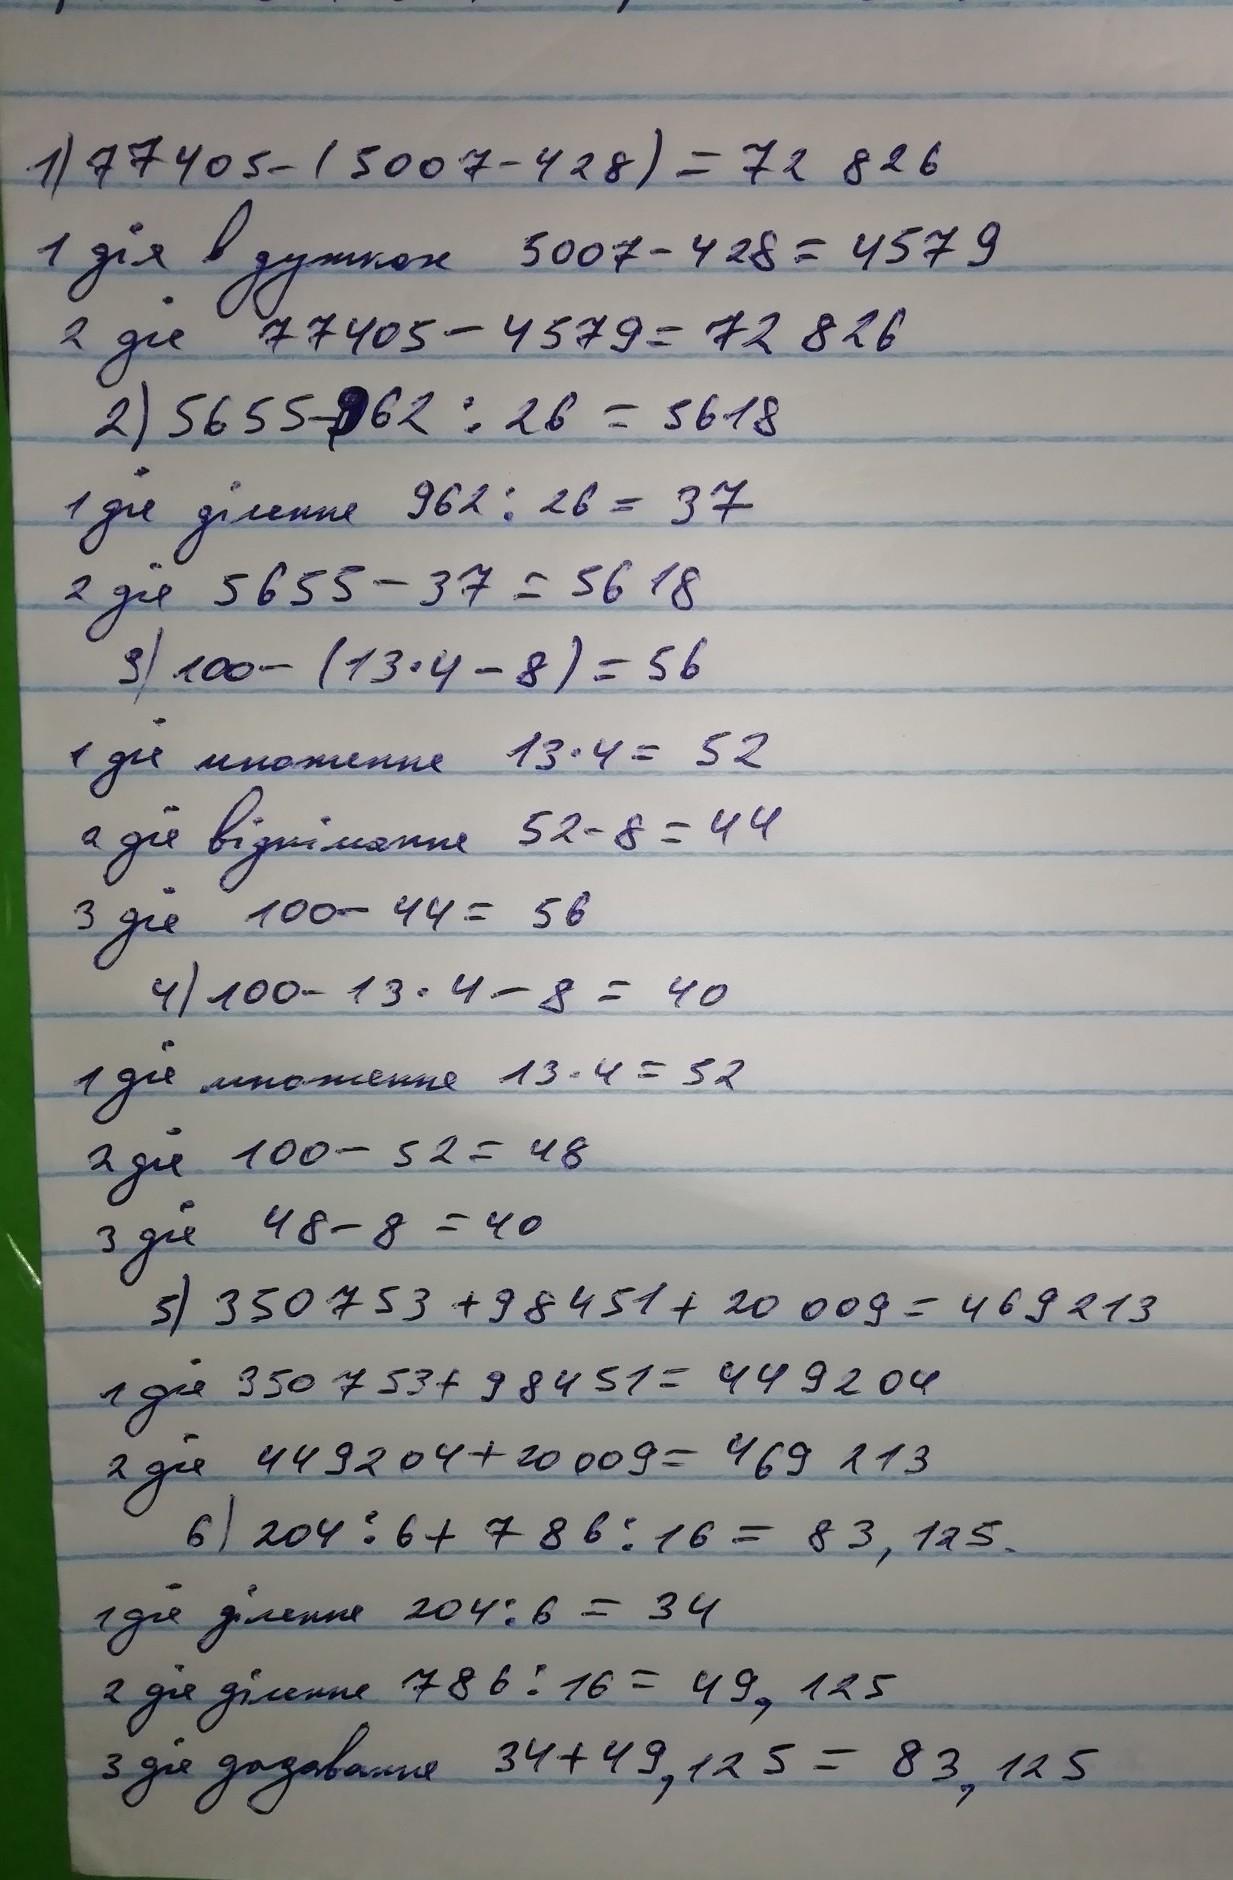 1) 77405-(5007-428)=72 826
1 дія в дужках 5007-428=4579
2 дія 77405-4579=72 826
2) 5655-962:26=5618
1 дія ділення 962:26=37
2 дія 5655-37=5618
3) 100-(13·4-8)=56
1 дія множення 13·4=52
2 дія віднімання 52-8=44
3 дія 100-44=56
4) 100-13·4-8=40
1 дія множення 13·4=52
2 дія 100-52=48
3 дія 48-8=40
5) 350753+98451+20 009=469213
1 дія 350753+98451=449204
2 дія 449204+20009=469 213
6) 204:6+786:16=83,125.
1 дія ділення 204:6=34
2 дія ділення 786:16=49,125
3 дія додавання 34+49,125=83,125